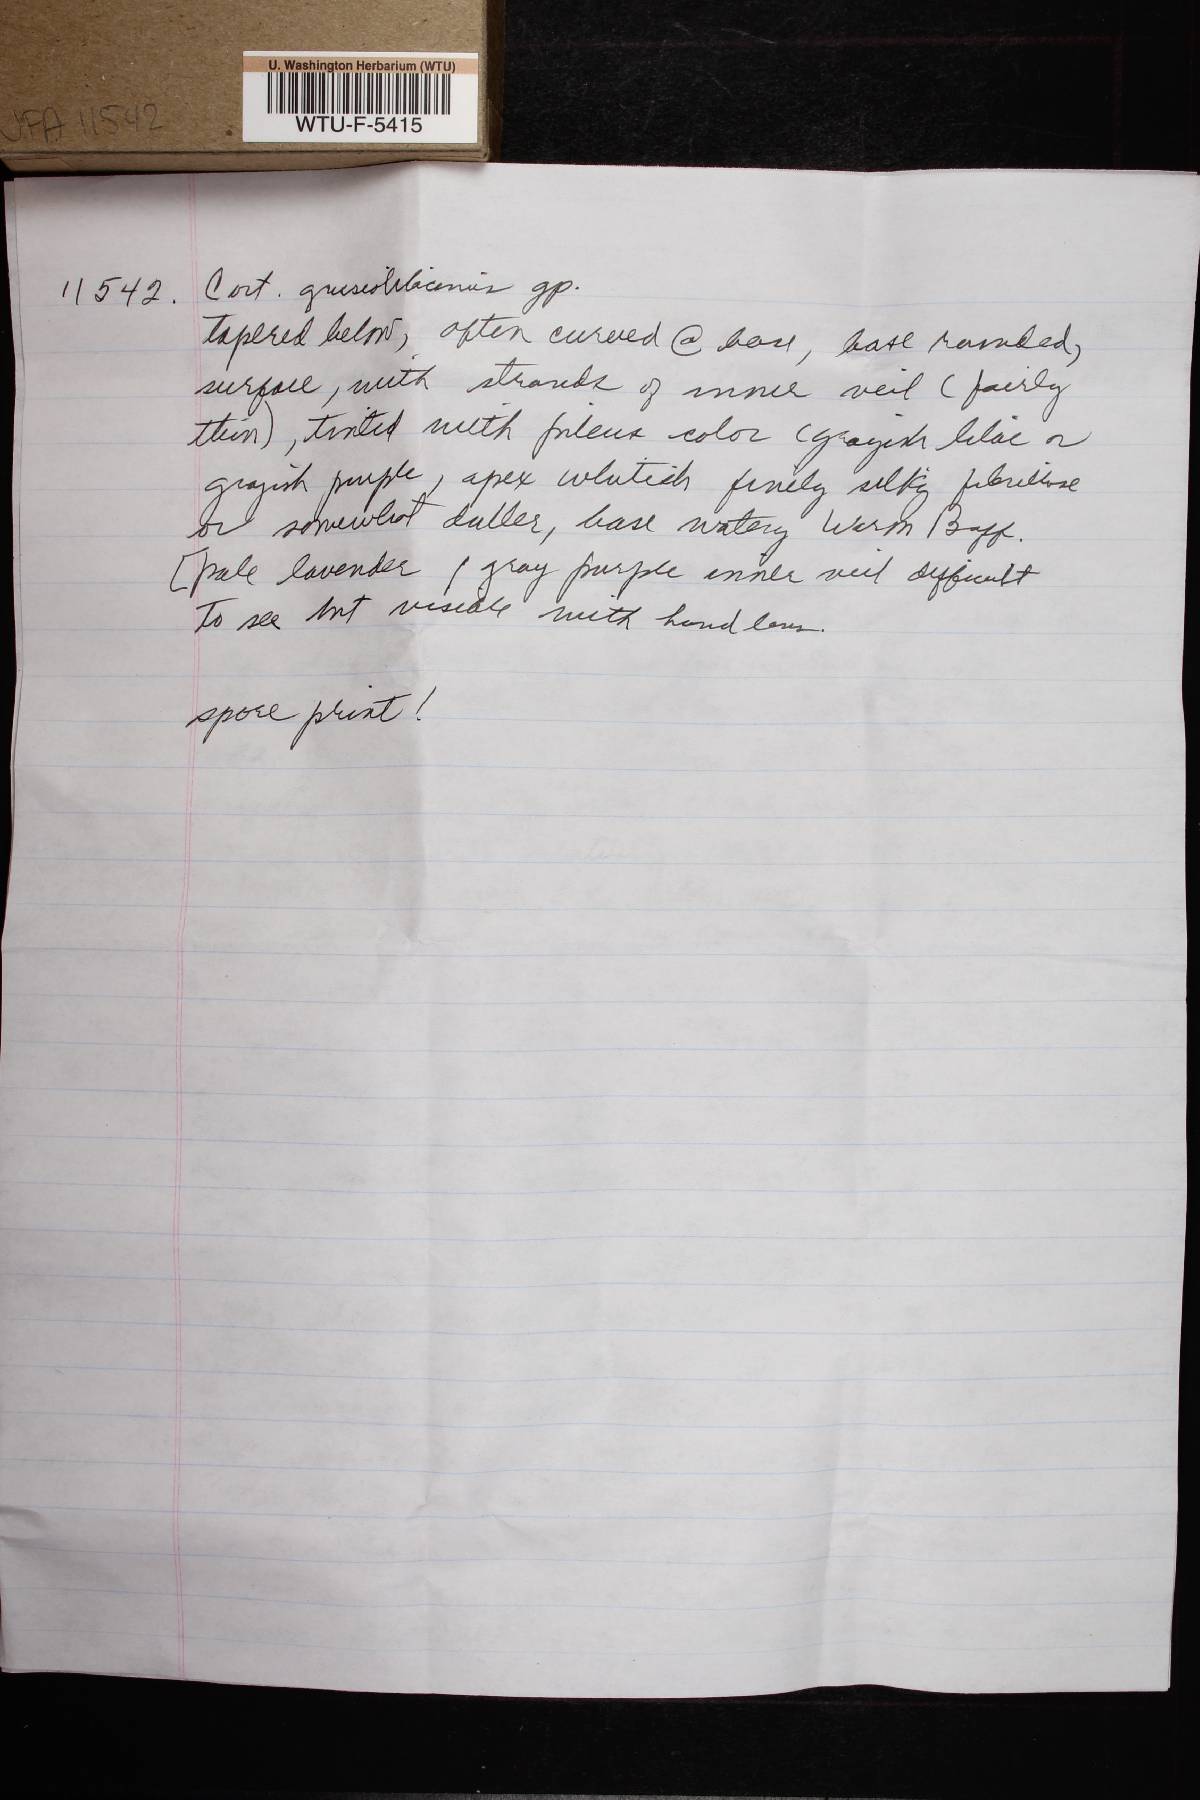 U. Washington Herbarium (WTU)
WTU-F-5415
JFA 11542
11542. Cort. griseolilacinus gp.
tapered below, often curved @ base, base rounded,
surface, with strands of inner veil (fairly
thin), tinted with pileus color (grayish lilac or
grayish purple, apex whitish finely silky fibrillose
or somewhat duller, base watery Warm Buff.
[pale lavender / gray purple inner veil difficult
to see but visible with hand lens.
spore print!